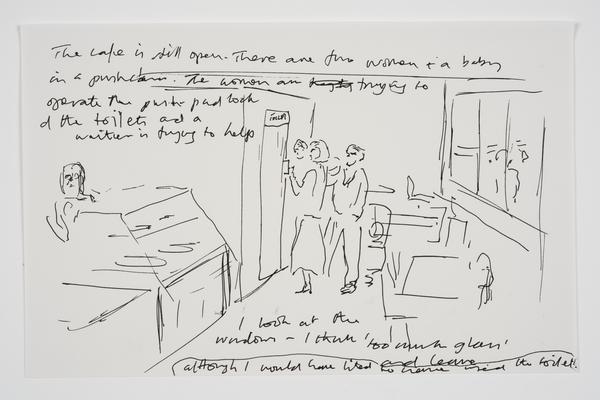 The cafe is still open. There are two women + a baby
in a pushchair. The women are trying to
operate the push pad lock
of the toilets and a
waiter is trying to help
TOILET
I look at the
windows – I think 'too much glass'
and leave
although I would have liked to have used the toilet.